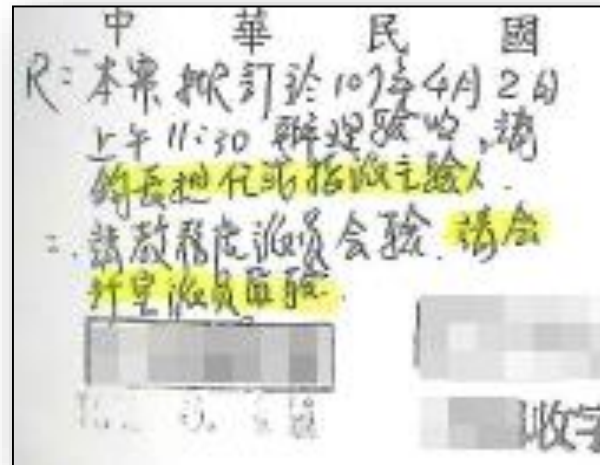 中華民國
R:一本案擬訂於107年4月2日
上午11:30辦理驗收,請
鈞長担任或指派主驗人.
二.請教務處派員會驗.請會
計室派員監驗.
收字